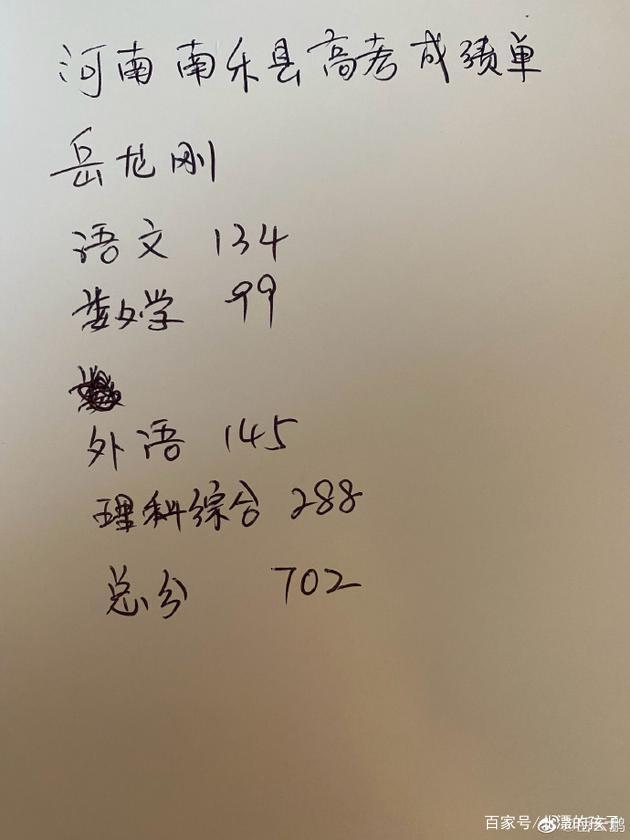 河南南乐县高考成绩单
岳龙刚
语文 134
数学 99
外语 145
理科综合 288
总分 702
百家号/北漂的孩子